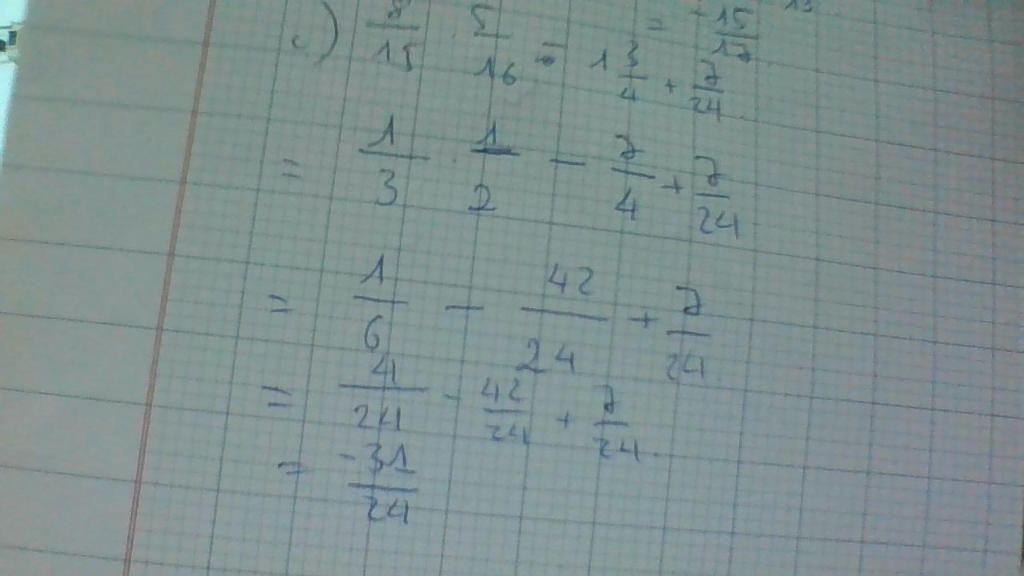 = -15/17
c) 8/15 · 5/16 - 1 3/4 + 7/24
= 1/3 · 1/2 - 7/4 + 7/24
= 1/6 - 42/24 + 7/24
= 4/24 - 42/24 + 7/24
= -31/24